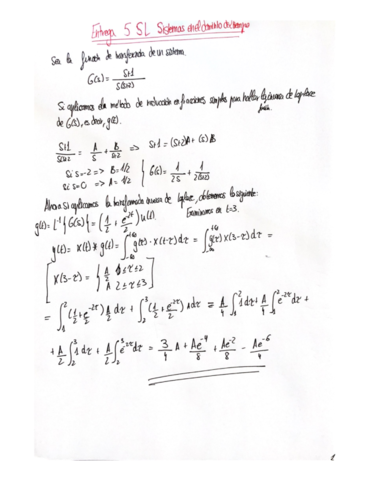 Entrega 5 SL Sistemas en el dominio del tiempo
Sea la función de transferencia de un sistema
G(s) = (s+1)/(s(s+2))
Si aplicamos el método de reducción en fracciones simples para hallar la inversa de laplace
de G(s), es decir, g(t).
(s+1)/(s(s+2)) = A/s + B/(s+2) => s+1 = (s+2)A + (s)B
Si s=-2 => B=1/2
Si s=0 => A=1/2 } G(s) = 1/(2s) + 1/(2(s+2))
Ahora si aplicamos la transformada inversa de laplace, obtenemos lo siguiente:
g(t) = L⁻¹{G(s)} = (1/2 + e^(-2t)/2) u(t). Examinamos en t=3.
y(t) = x(t) * g(t) = ∫_{-∞}^{+∞} g(τ)·x(t-τ)dτ = ∫_{-∞}^{+∞} g(τ) x(3-τ)dτ =
[x(3-τ) = { A/2 1≤τ≤2
A 2≤τ≤3 ]
= ∫_1^2 (1/2 + e^(-2τ)/2) A/2 dτ + ∫_2^3 (1/2 + e^(-2τ)/2) A dτ = A/4 ∫_1^2 1dτ + A/4 ∫_1^2 e^(-2τ) dτ +
+ A/2 ∫_2^3 1dτ + A/2 ∫_2^3 e^(-2τ) dτ = 3/4 A + Ae^(-4)/8 + Ae^(-2)/8 - Ae^(-6)/4